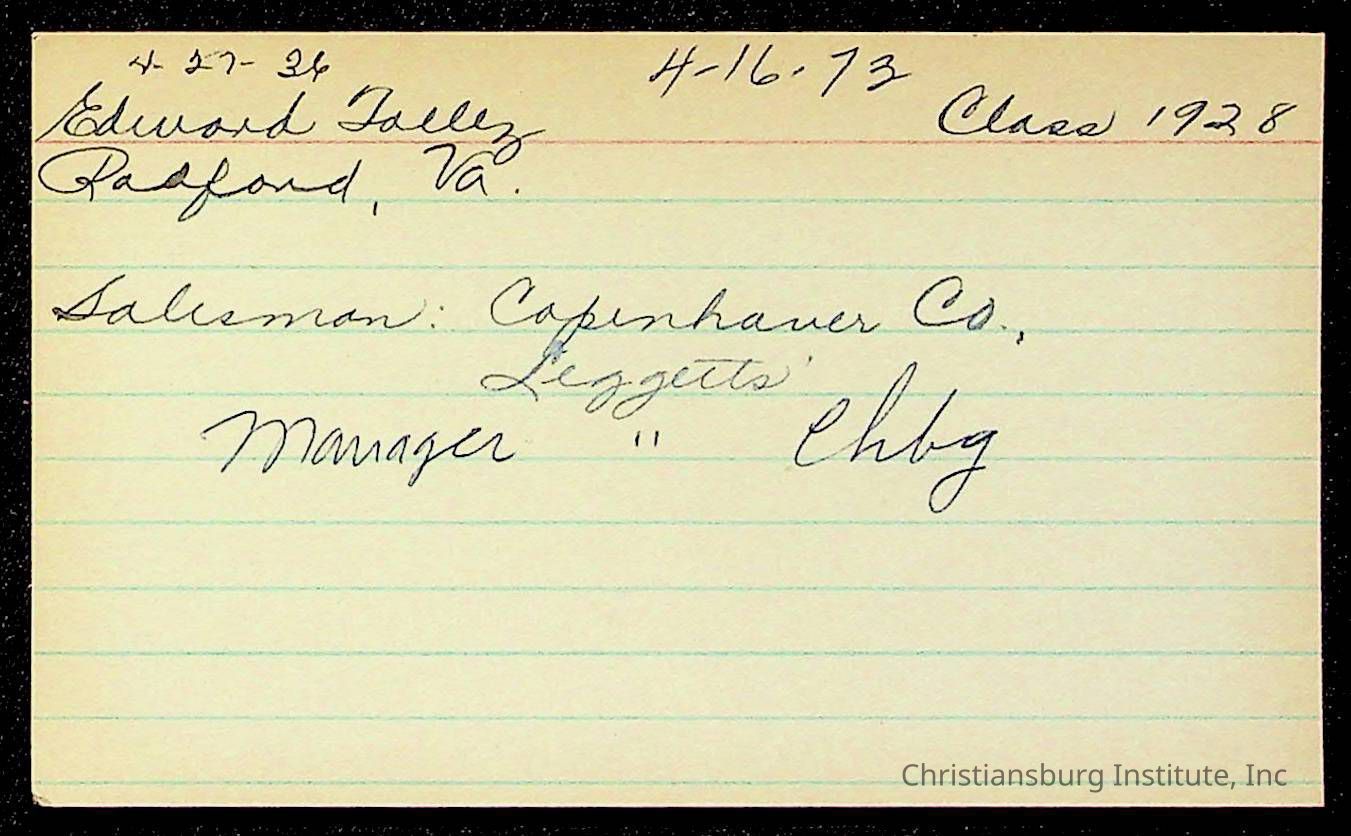 4-27-36 4-16-73
Edward Tolley Class 1928
Radford, Va.
Salesman: Copenhaver Co.,
Leggetts
Manager " Chbg
Christiansburg Institute, Inc